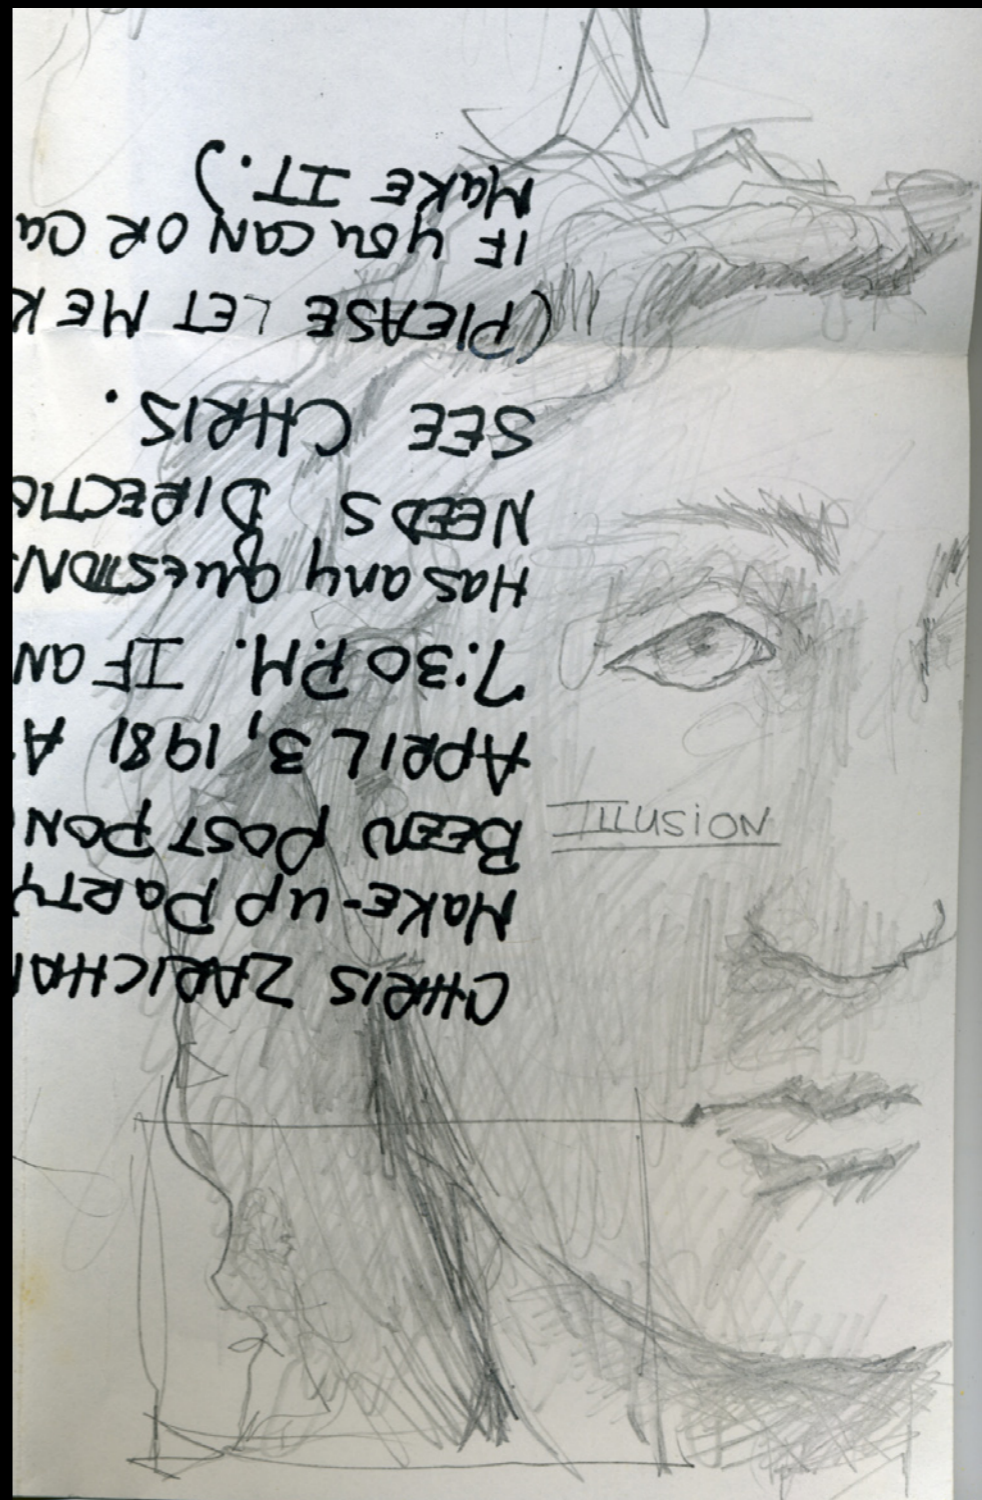 CHRIS ZARICHA
MaKE-up PaRTY
BEEN POST PON
APRIL 3, 1981 A
7:30 P.M. IF an
Has any quESTIONS
NEEDS DIRECTIO
SEE CHRIS.
(PlEASE LET ME K
IF you can OR ca
MaKE IT.)
ILLUSiON